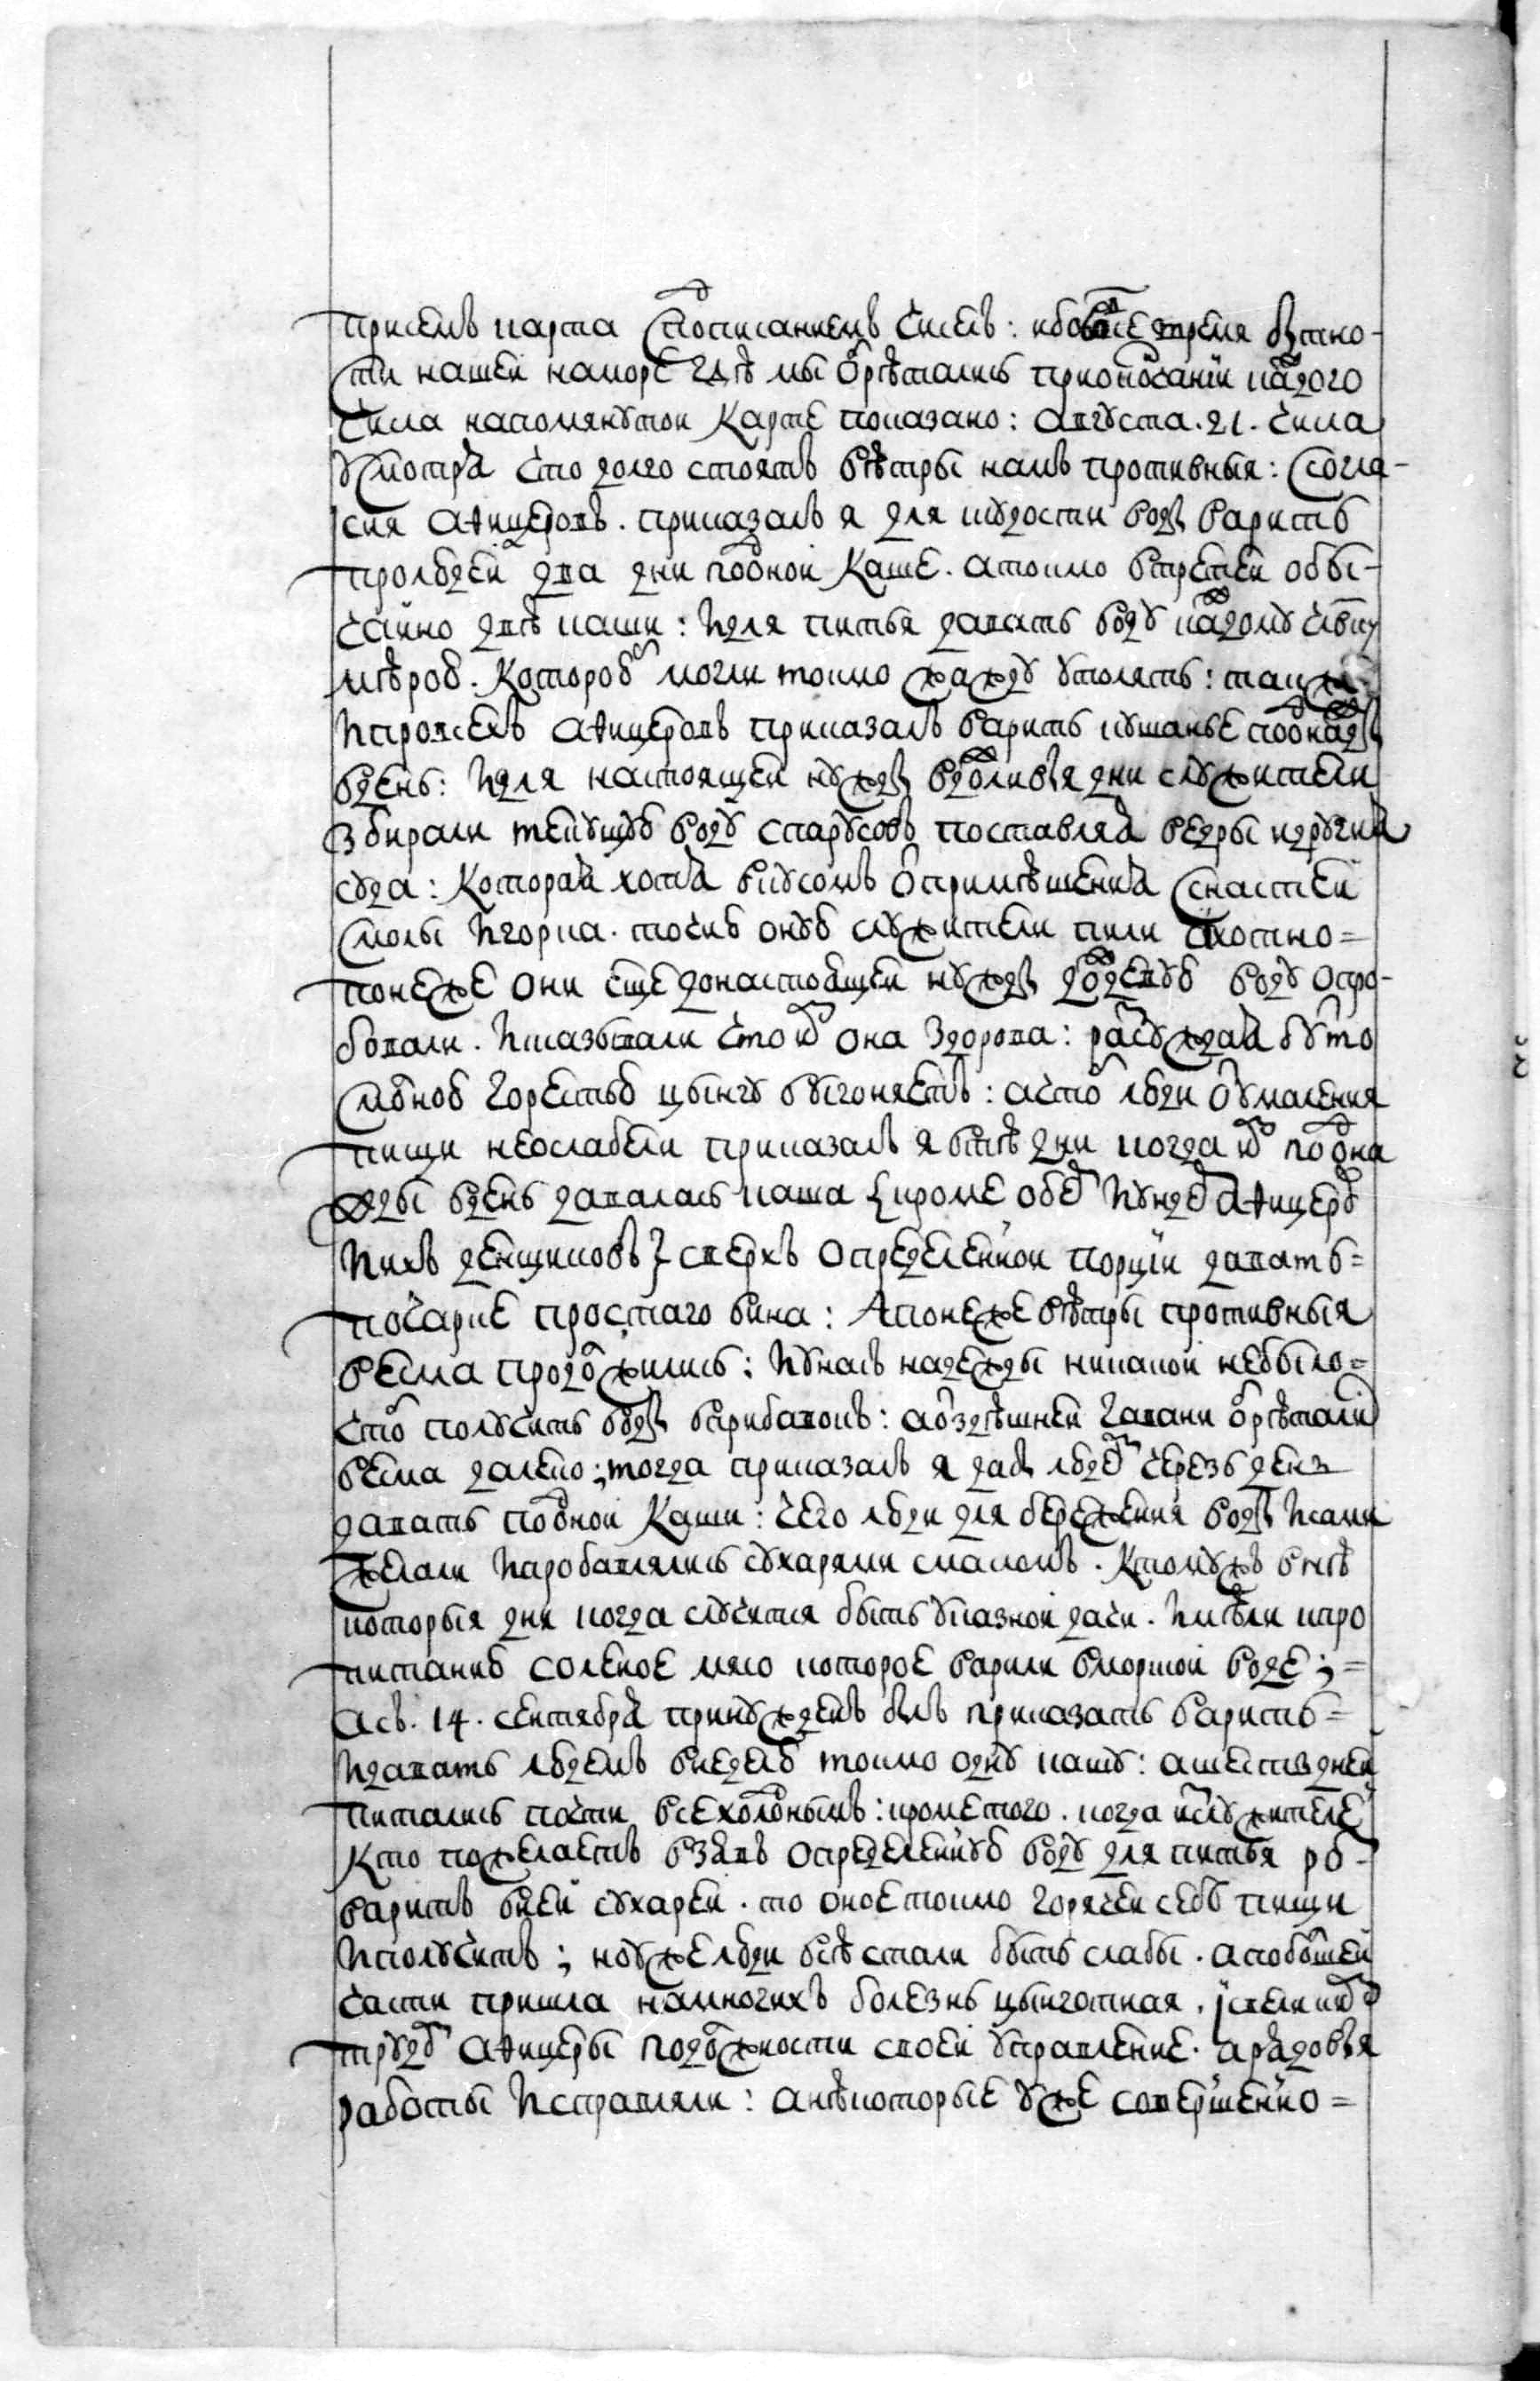 при семъ карта с подписаниемъ чиселъ: ибо в все время бытно-
сти нашей на море где мы обретались при окончании каждого
числа на помянутой карте показано: августа. 21. числа
усмотря что долго стоятъ ветры намъ противныя: с согла-
сия афицеровъ. приказалъ я для скудости воды варить
про людей два дни по одной каше. а токмо в третей обы-
чайно две каши: и для питья давать воду каждому человеку
мерою. которою б могли токмо жажду утолять: також
и про всехъ афицеровъ приказалъ варить кушанье по однажды
в день: и для настоящей нужды в дождливыя дни служители
збирали текущую воду с парусовъ поставляя ведры и другия
суда: которая хотя вкусомъ от примешения с снастей
смолы и горка. точию оную служители пили охотно=
понеже они еще до настоящей нужды дождевую воду опро-
бовали. и сказывали что им она здорова: разсуждая бутто
смоляною горестью цынгу выгоняетъ: а чтоб люди от умаления
пищи не ослабели приказалъ я в те дни когда им по одна
жды в день давалась каша {кроме обер и ундер афицеров
и ихъ денщиковъ} сверхъ определенной порции давать=
по чарке простаго вина: А понеже ветры противныя
весма продолжились: и у насъ надежды никакой не было=
чтоб получить воды в прибавокъ: а от здешней гавани обретались
весма далеко; тогда приказалъ я для людей черезъ день
давать по одной каши: чего люди для бережения воды и сами
желали и пробавлялись сухарями с масломъ. к томужъ в не
которыя дни когда случится быть указной дачи. имели к про
питанию соленое мясо которое варили в морской воде;=
а съ. 14. сентября принужденъ былъ приказать варить=
и давать людемъ в неделю токмо одну кашу: а шесть дней
питались почти все холоднымъ: кроме того. когда из служителей
кто пожелаетъ взявъ определенную воду для питья ро-
варить в ней сухарей. то оное токмо горячей себе пищи
и получить; но уже люди все стали быть слабы. а по большей
части пришла на многихъ болезнь цынготная, с великим
трудом афицеры по должности своей управление. а рядовыя
работы исправляли: а некоторые уже совершенно=